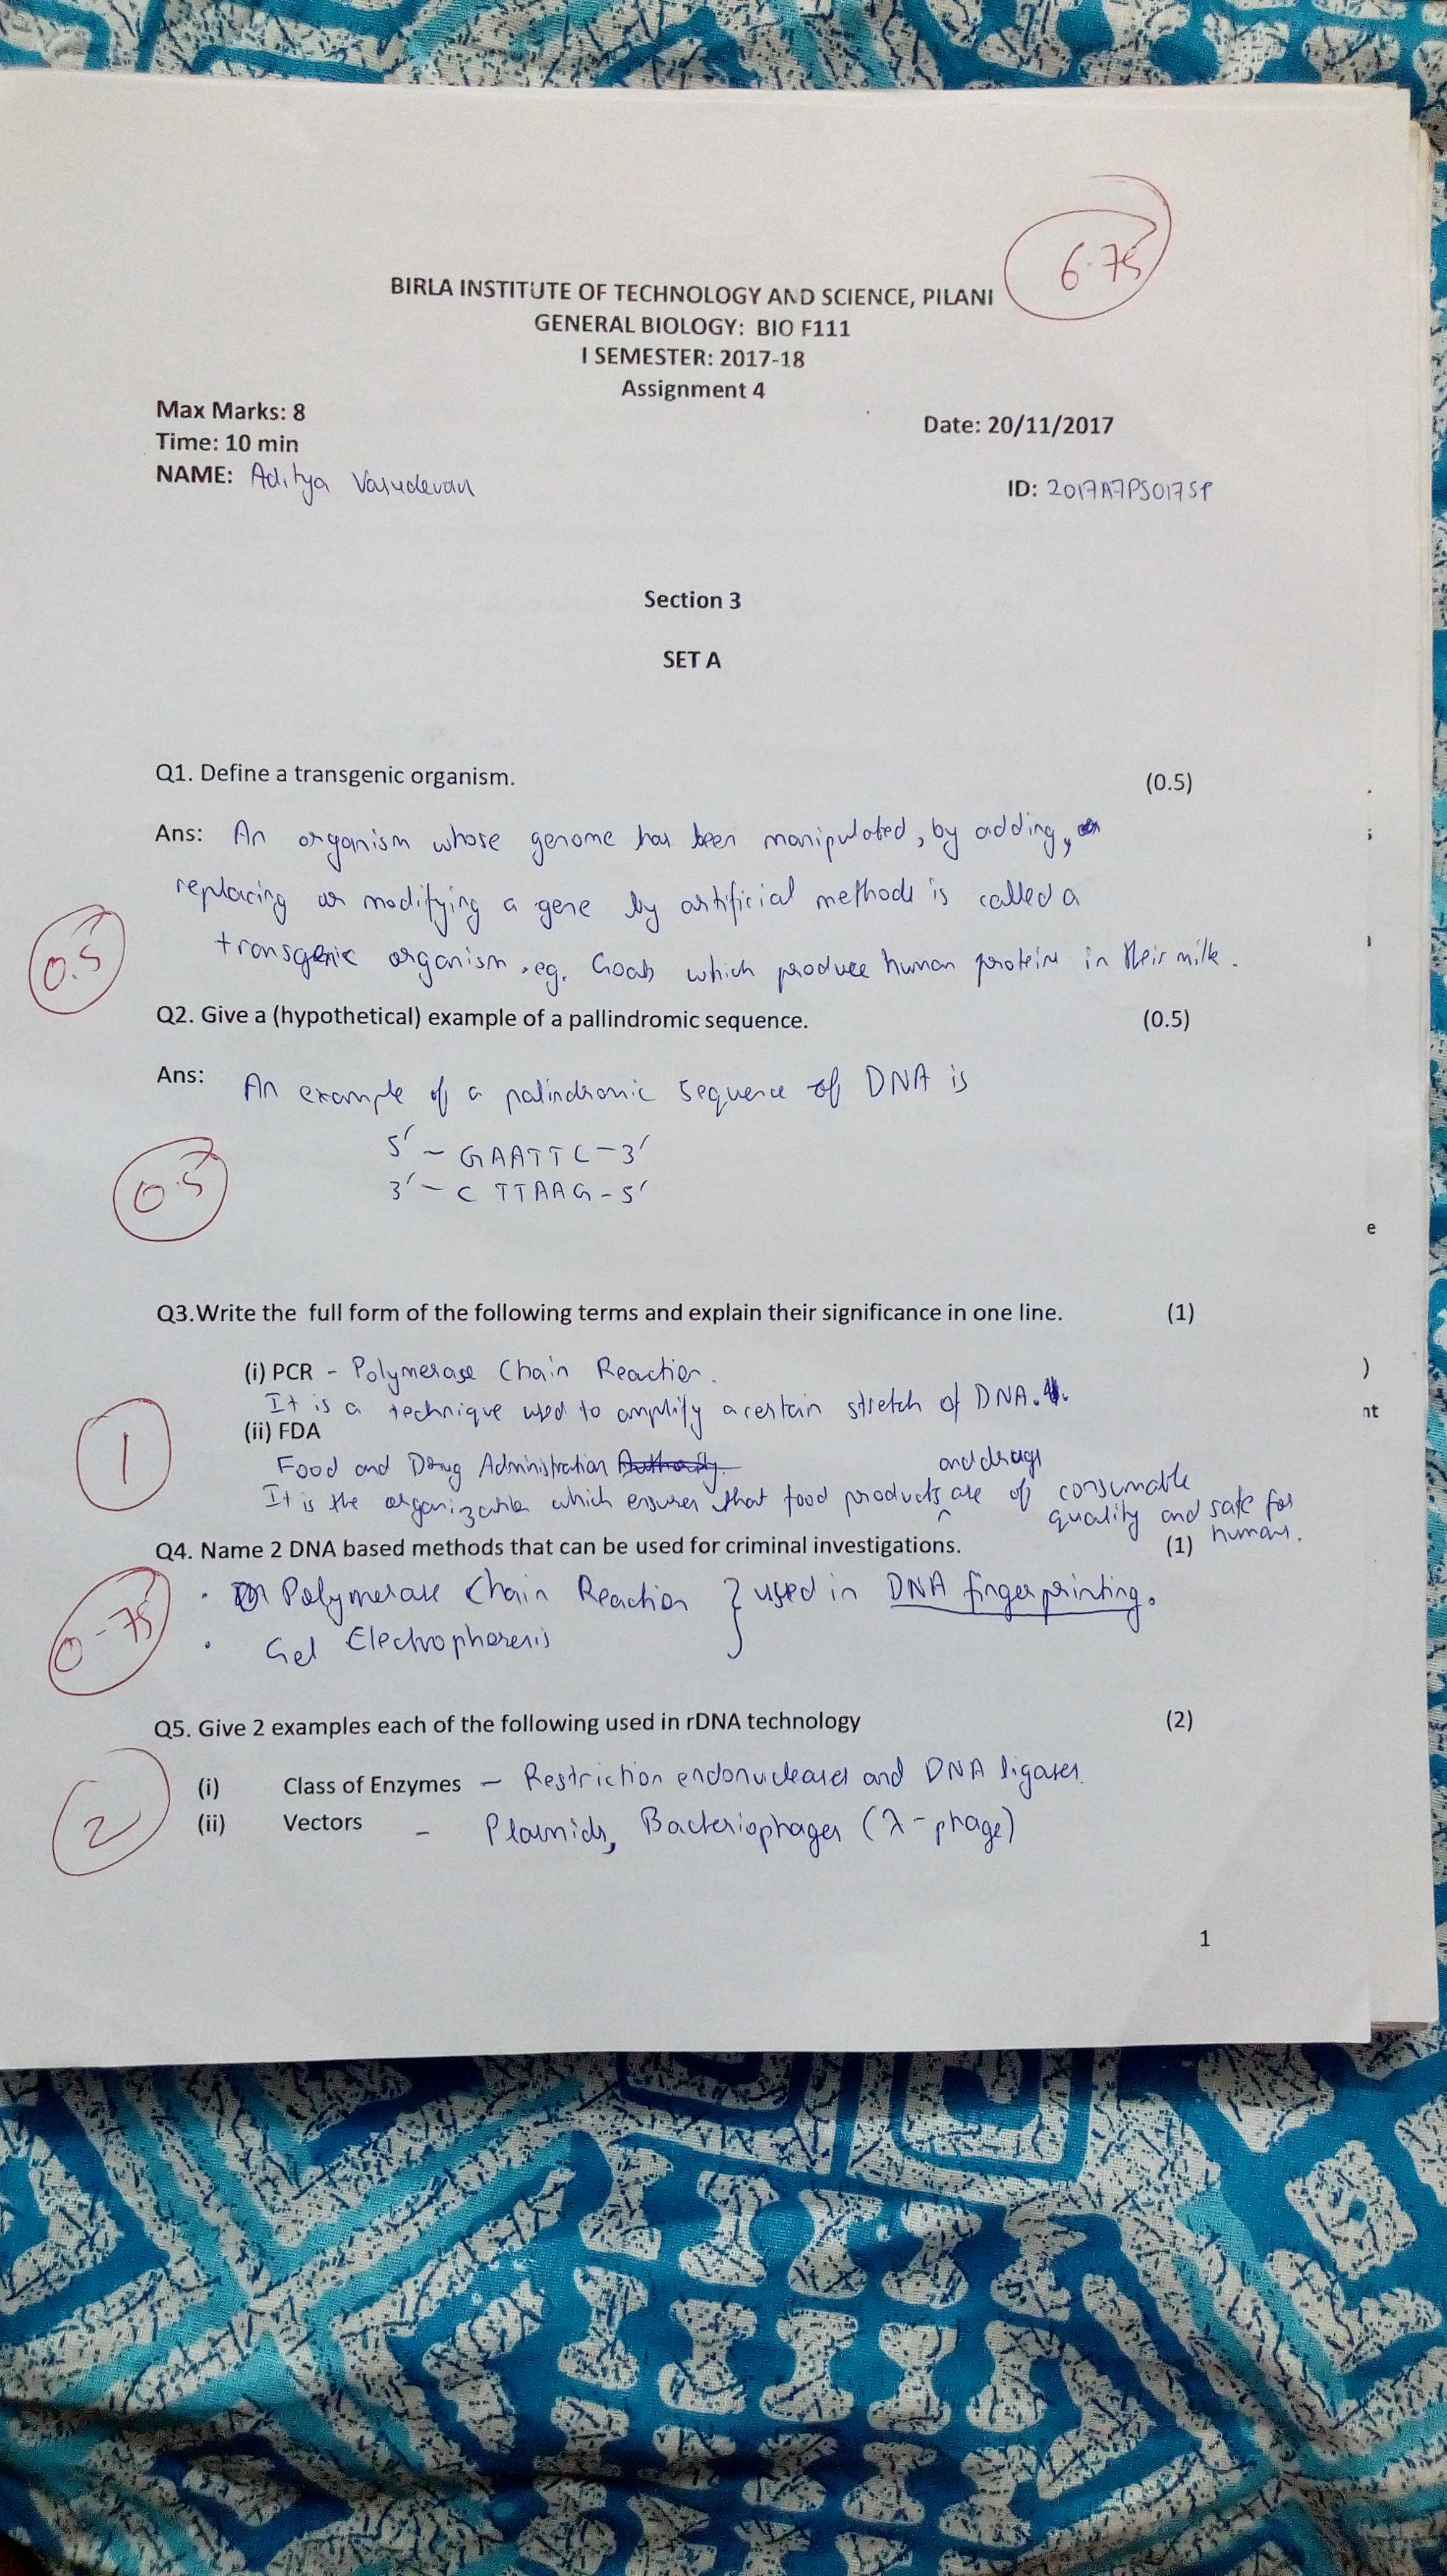 6.75
BIRLA INSTITUTE OF TECHNOLOGY AND SCIENCE, PILANI
GENERAL BIOLOGY: BIO F111
I SEMESTER: 2017-18
Assignment 4
Max Marks: 8
Date: 20/11/2017
Time: 10 min
NAME: Aditya Vasudevan
ID: 2017A7PS0175P
Section 3
SET A
Q1. Define a transgenic organism. (0.5)
Ans: An organism whose genome has been manipulated, by adding,
replacing or modifying a gene by artificial methods is called a
0.5
transgenic organism. eg. Goats which produce human proteins in their milk.
Q2. Give a (hypothetical) example of a pallindromic sequence. (0.5)
Ans: An example of a palindromic sequence of DNA is
5' - GAATTC - 3'
0.5
3' - CTTAAG - 5'
e
Q3.Write the full form of the following terms and explain their significance in one line. (1)
(i) PCR - Polymerase Chain Reaction.
)
It is a technique used to amplify a certain stretch of DNA.
nt
(ii) FDA
1
Food and Drug Administration
and drugs
It is the organization which ensures that food products are of consumable
quality and safe for
humans.
Q4. Name 2 DNA based methods that can be used for criminal investigations. (1)
• Polymerase Chain Reaction } used in DNA fingerprinting.
0-75
• Gel Electrophoresis
Q5. Give 2 examples each of the following used in rDNA technology (2)
(i) Class of Enzymes - Restriction endonucleases and DNA ligases.
2
(ii) Vectors - Plasmids, Bacteriophages (λ-phage)
1